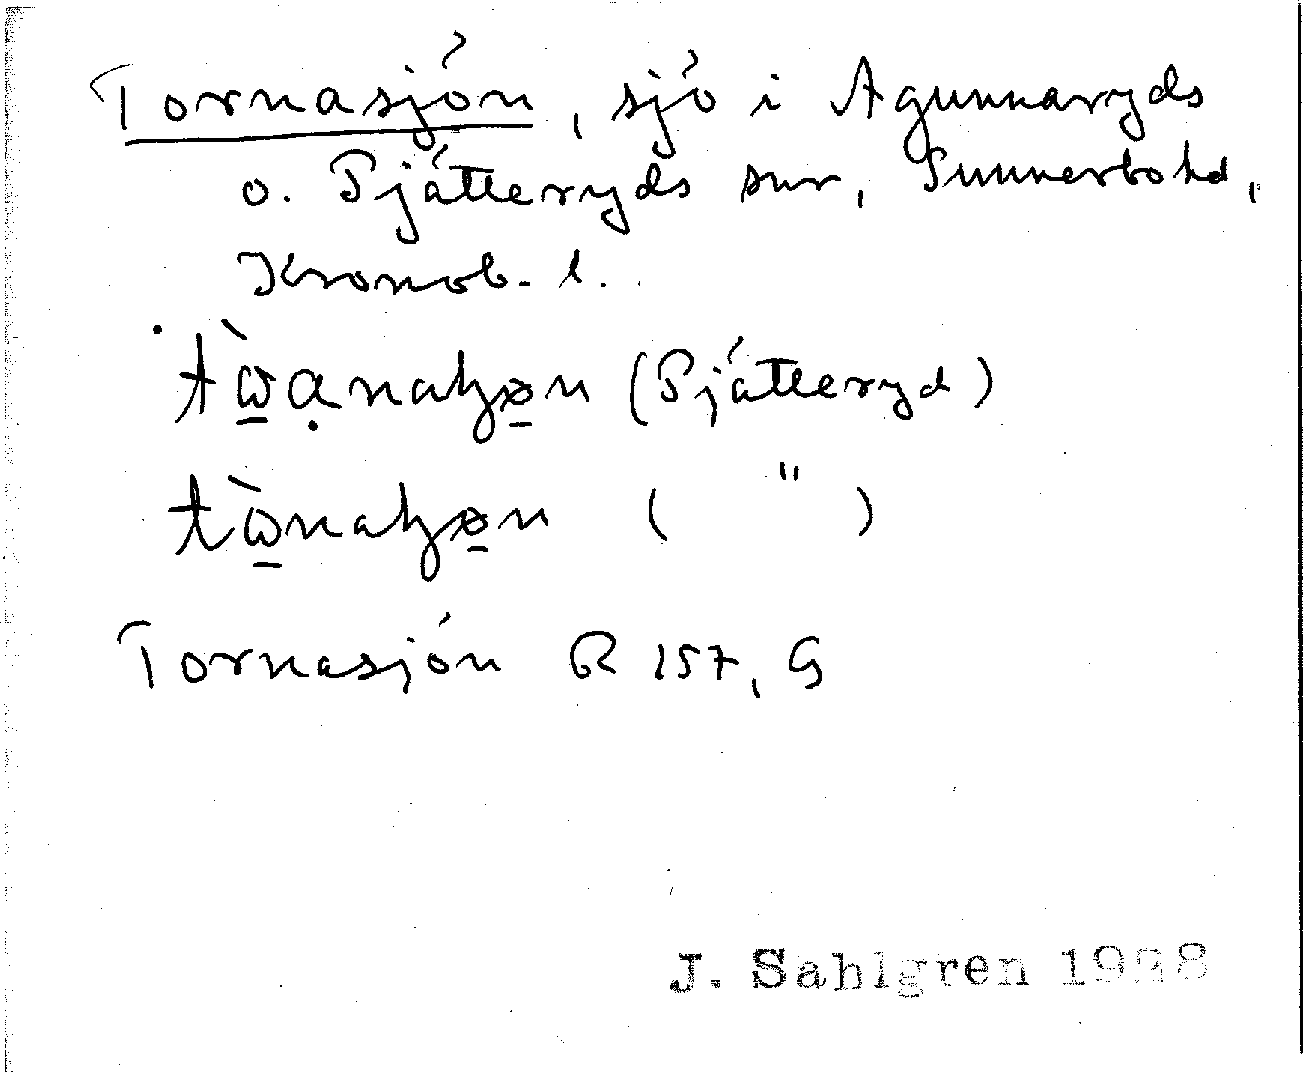 Tornasjön, sjö i Agunnaryds
o. Pjätteryds snr, Sunnerbo hd,
Kronob. l.
(Pjätteryd)
( " )
Tornasjön R 157, G
J. Sahlgren 1928